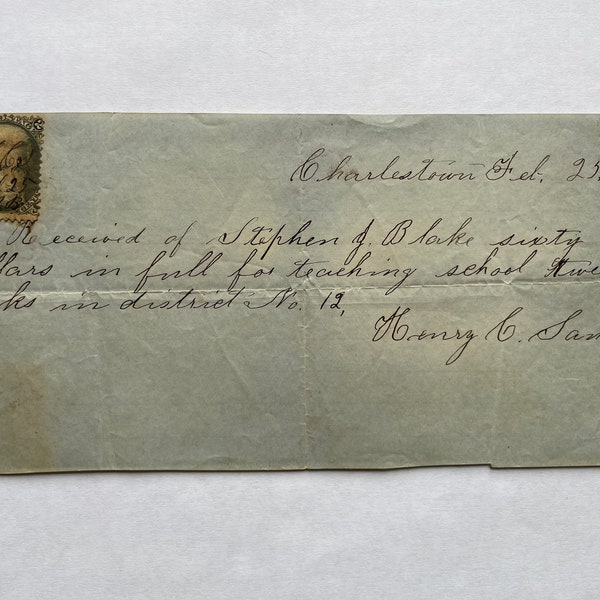 Charlestown Feb. 25
Received of Stephen J. Blake sixty
llars in full for teaching school twe
ks in district No. 12,
Henry C. Sam